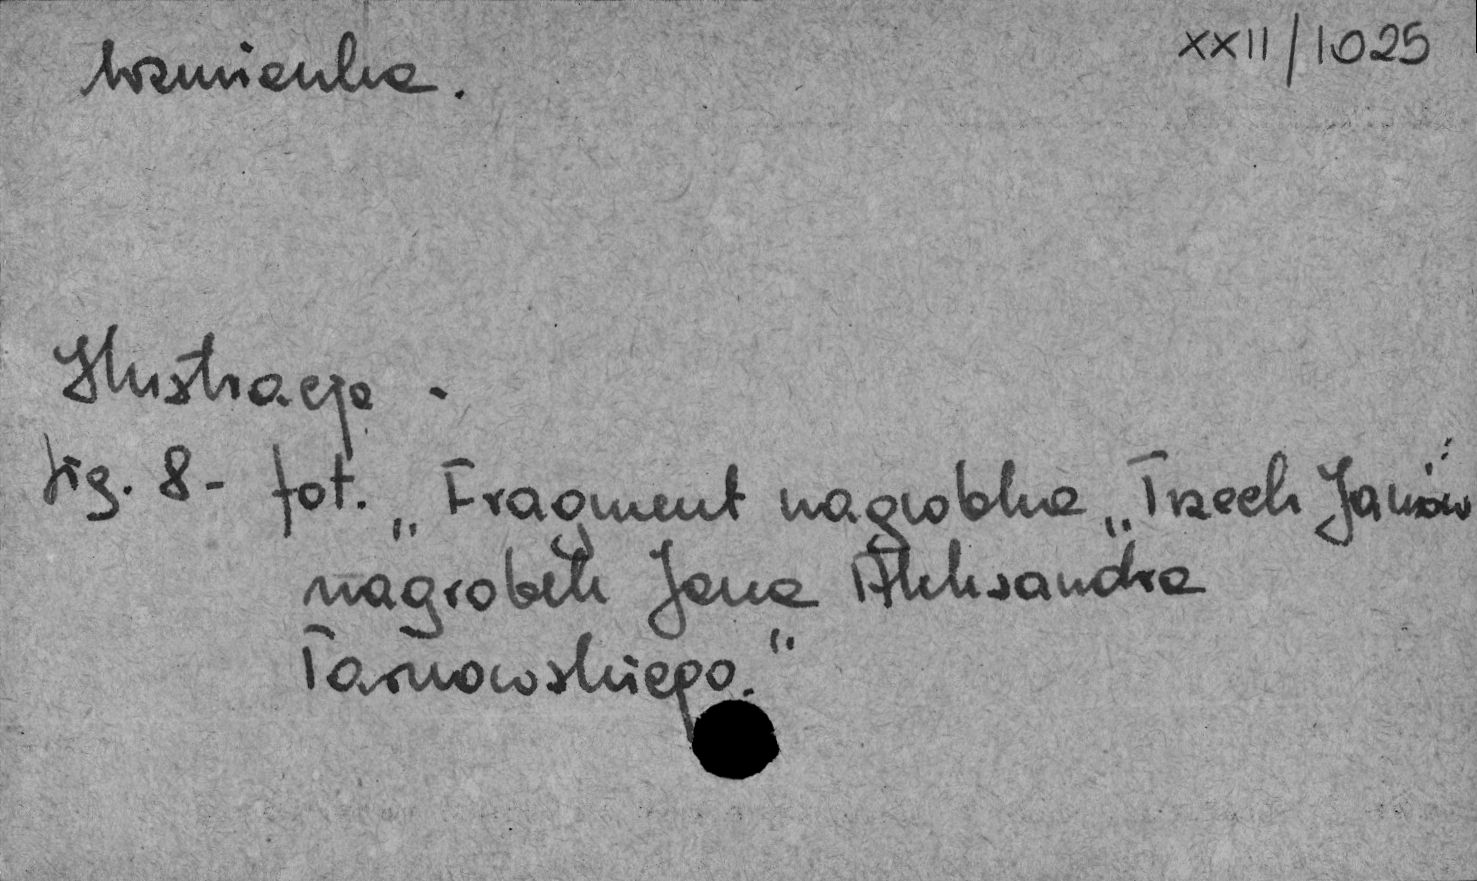 wzmianka.
XXII/1025
Ilustracja -
fig. 8 - fot. „Fragment nagrobka „Trzech Janów"
nagrobek Jana Aleksandra
Tarnowskiego."